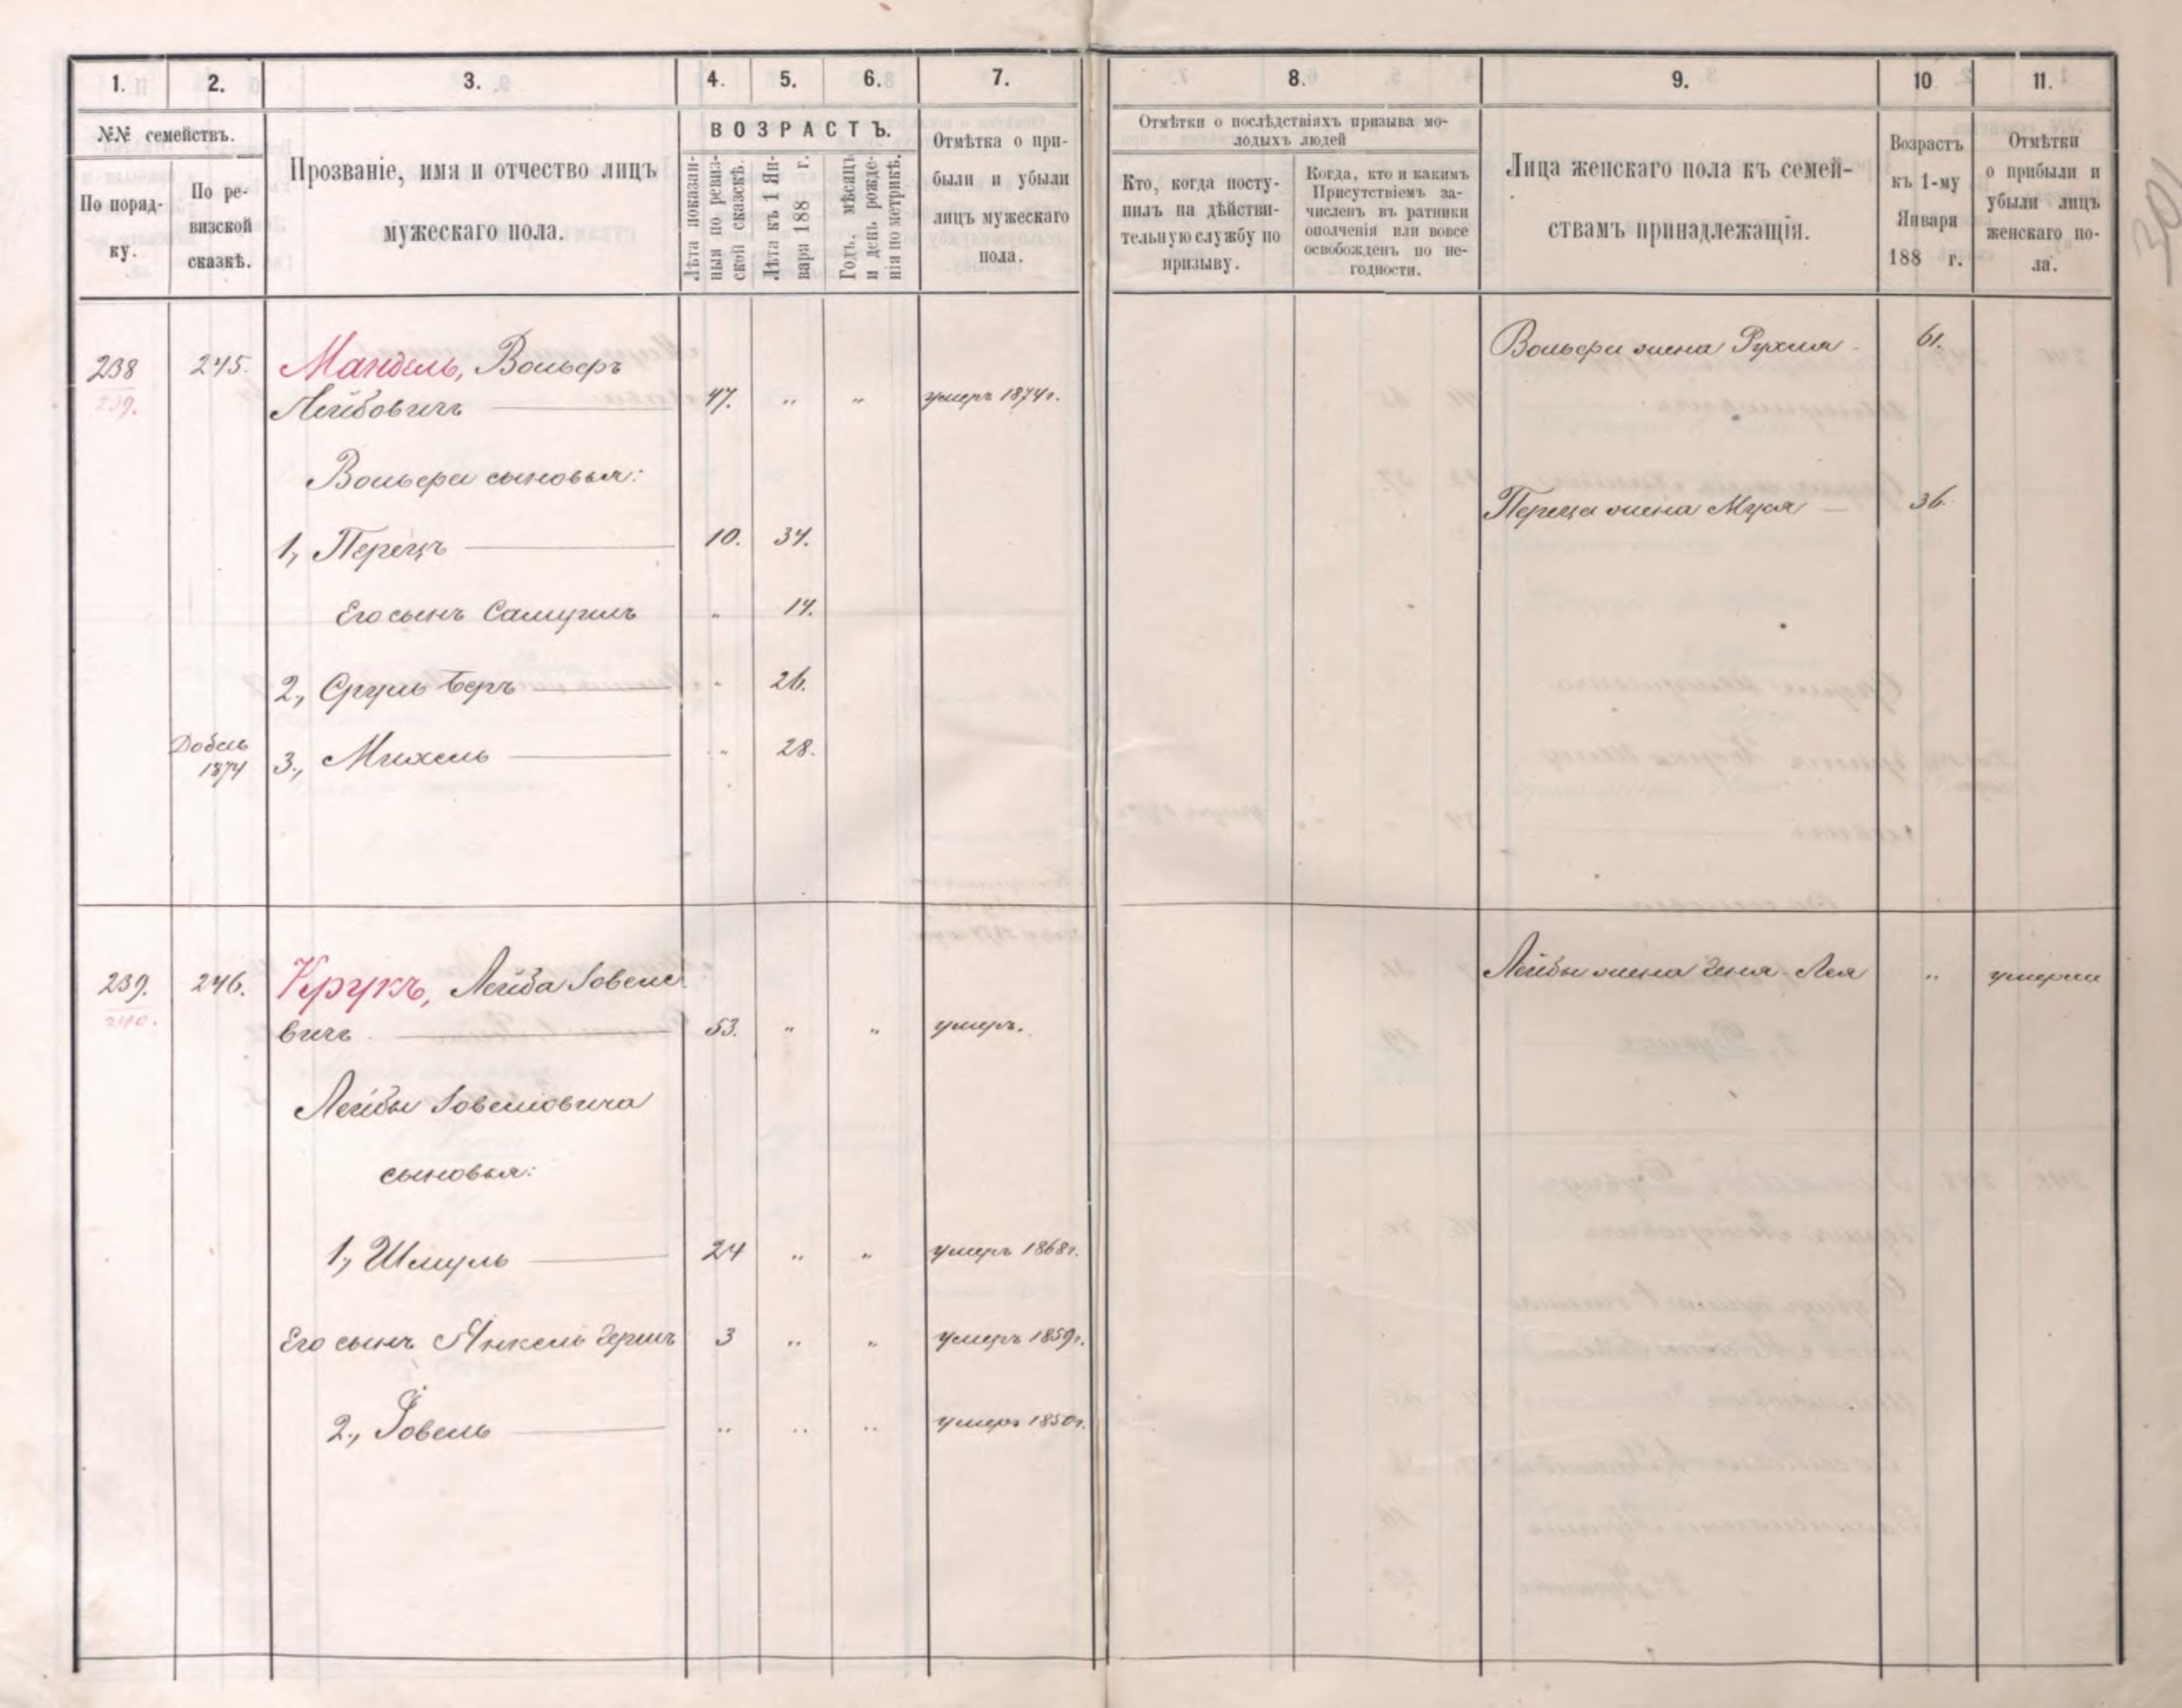 1.
2.
3.
4.
5.
6.
7.
8.
9.
10
11.
№№ семействъ.
По поряд-
ку.
По ре-
визской
сказкѣ.
Прозваніе, имя и отчество лицъ
мужескаго пола.
ВОЗРАСТЪ.
Лѣта показан-
ныя по ревиз-
ской сказкѣ.
Лѣта къ 1 Ян-
варя 188 г.
Годъ, мѣсяцъ
и день рожде-
нія по метрикѣ.
Отмѣтка о при-
были и убыли
лицъ мужескаго
пола.
Отмѣтки о послѣдствіяхъ призыва мо-
лодыхъ людей
Кто, когда посту-
пилъ на дѣйстви-
тельную службу по
призыву.
Когда, кто и какимъ
Присутствіемъ за-
численъ въ ратники
ополченія или вовсе
освобожденъ по не-
годности.
Лица женскаго пола къ семей-
ствамъ принадлежащія.
Возрастъ
къ 1-му
Января
188 г.
Отмѣтки
о прибыли и
убыли лицъ
женскаго по-
ла.
238 245. Мандель, Вольфъ
239. Лейбовичъ 47. " " умеръ 1874г.
Вольфа жена Рухля 61.
Вольфа сыновья:
1, Перецъ 10. 34.
Переца жена Муся 36.
Его сынъ Самуилъ " 14.
2, Сруль Беръ " 26.
Добавь
1874 3, Михель " 28.
239. 246. Крукъ, Лейба Іовеле
240. вичъ 53. " " умеръ.
Лейбы жена Геня-Лея " умерла
Лейбы Іовелевича
сыновья:
1, Шмуль 24 " " умеръ 1868г.
Его сынъ Янкель Гершъ 3 " " умеръ 1859г.
2, Іовель " " " умеръ 1850г.